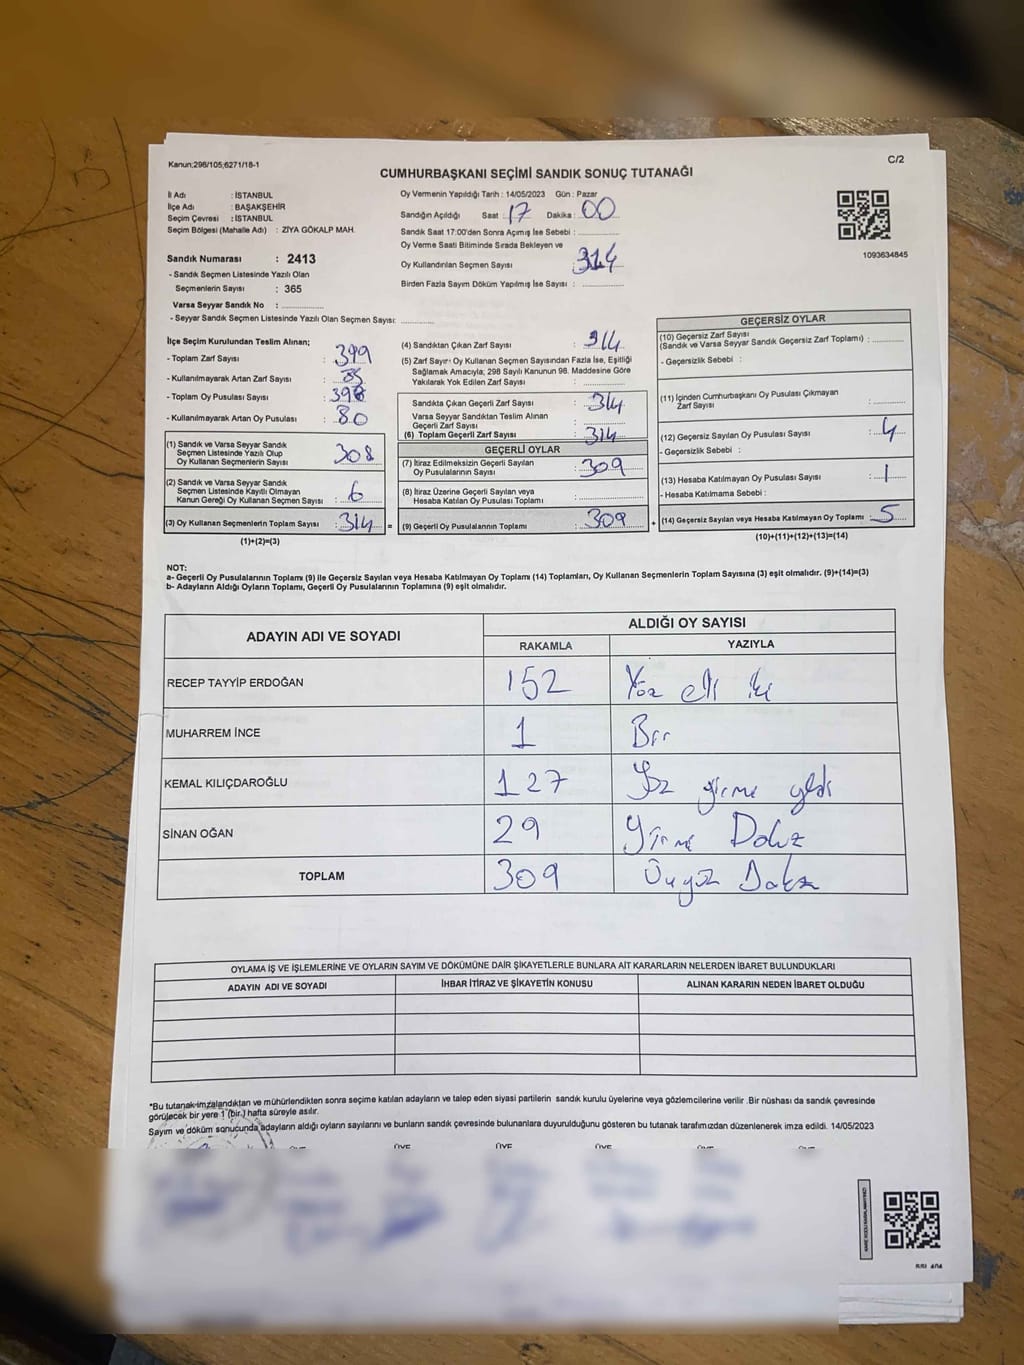 Kanun;298/105;6271/18-1
C/2
CUMHURBAŞKANI SEÇİMİ SANDIK SONUÇ TUTANAĞI
İl Adı : İSTANBUL
İlçe Adı : BAŞAKŞEHİR
Seçim Çevresi : İSTANBUL
Seçim Bölgesi (Mahalle Adı) : ZİYA GÖKALP MAH.
Sandık Numarası : 2413
- Sandık Seçmen Listesinde Yazılı Olan
Seçmenlerin Sayısı : 365
Varsa Seyyar Sandık No :
- Seyyar Sandık Seçmen Listesinde Yazılı Olan Seçmen Sayısı:
Oy Vermenin Yapıldığı Tarih : 14/05/2023 Gün : Pazar
Sandığın Açıldığı Saat : 17 Dakika : 00
Sandık Saat 17:00'den Sonra Açımış İse Sebebi :
Oy Verme Saati Bitiminde Sırada Bekleyen ve
Oy Kullandırılan Seçmen Sayısı : 314
Birden Fazla Sayım Döküm Yapılmış İse Sayısı :
1093634845
İlçe Seçim Kurulundan Teslim Alınan;
- Toplam Zarf Sayısı : 399
- Kullanılmayarak Artan Zarf Sayısı : 85
- Toplam Oy Pusulası Sayısı : 398
- Kullanılmayarak Artan Oy Pusulası : 80
(1) Sandık ve Varsa Seyyar Sandık
Seçmen Listesinde Yazılı Olup
Oy Kullanan Seçmenlerin Sayısı : 308
(2) Sandık ve Varsa Seyyar Sandık
Seçmen Listesinde Kayıtlı Olmayan
Kanun Gereği Oy Kullanan Seçmen Sayısı : 6
(3) Oy Kullanan Seçmenlerin Toplam Sayısı : 314 =
(1)+(2)=(3)
(4) Sandıktan Çıkan Zarf Sayısı : 314
(5) Zarf Sayısı Oy Kullanan Seçmen Sayısından Fazla İse, Eşitliği
Sağlamak Amacıyla; 298 Sayılı Kanunun 98. Maddesine Göre
Yakılarak Yok Edilen Zarf Sayısı :
Sandıkta Çıkan Geçerli Zarf Sayısı : 314
Varsa Seyyar Sandıktan Teslim Alınan
Geçerli Zarf Sayısı :
(6) Toplam Geçerli Zarf Sayısı : 314
GEÇERLİ OYLAR
(7) İtiraz Edilmeksizin Geçerli Sayılan
Oy Pusulalarının Sayısı : 309
(8) İtiraz Üzerine Geçerli Sayılan veya
Hesaba Katılan Oy Pusulası Toplamı :
(9) Geçerli Oy Pusulalarının Toplamı : 309 +
GEÇERSİZ OYLAR
(10) Geçersiz Zarf Sayısı
(Sandık ve Varsa Seyyar Sandık Geçersiz Zarf Toplamı) :
- Geçersizlik Sebebi :
(11) İçinden Cumhurbaşkanı Oy Pusulası Çıkmayan
Zarf Sayısı :
(12) Geçersiz Sayılan Oy Pusulası Sayısı : 4
- Geçersizlik Sebebi :
(13) Hesaba Katılmayan Oy Pusulası Sayısı : 1
- Hesaba Katılmama Sebebi :
(14) Geçersiz Sayılan veya Hesaba Katılmayan Oy Toplamı : 5
(10)+(11)+(12)+(13)=(14)
NOT:
a- Geçerli Oy Pusulalarının Toplamı (9) ile Geçersiz Sayılan veya Hesaba Katılmayan Oy Toplamı (14) Toplamları, Oy Kullanan Seçmenlerin Toplam Sayısına (3) eşit olmalıdır. (9)+(14)=(3)
b- Adayların Aldığı Oyların Toplamı, Geçerli Oy Pusulalarının Toplamına (9) eşit olmalıdır.
ADAYIN ADI VE SOYADI
ALDIĞI OY SAYISI
RAKAMLA YAZIYLA
RECEP TAYYİP ERDOĞAN 152 Yüz elli iki
MUHARREM İNCE 1 Bir
KEMAL KILIÇDAROĞLU 127 Yüz yirmi yedi
SİNAN OĞAN 29 Yirmi Dokuz
TOPLAM 309 Üçyüz Dokuz
OYLAMA İŞ VE İŞLEMLERİNE VE OYLARIN SAYIM VE DÖKÜMÜNE DAİR ŞİKAYETLERLE BUNLARA AİT KARARLARIN NELERDEN İBARET BULUNDUKLARI
ADAYIN ADI VE SOYADI İHBAR İTİRAZ VE ŞİKAYETİN KONUSU ALINAN KARARIN NEDEN İBARET OLDUĞU
*Bu tutanak imzalandıktan ve mühürlendikten sonra seçime katılan adayların ve talep eden siyasi partilerin sandık kurulu üyelerine veya gözlemcilerine verilir .Bir nüshası da sandık çevresinde
görülecek bir yere 1 (bir.) hafta süreyle asılır.
Sayım ve döküm sonucunda adayların aldığı oyların sayılarını ve bunların sandık çevresinde bulunanlara duyurulduğunu gösteren bu tutanak tarafımızdan düzenlenerek imza edildi. 14/05/2023
ÜYE ÜYE ÜYE